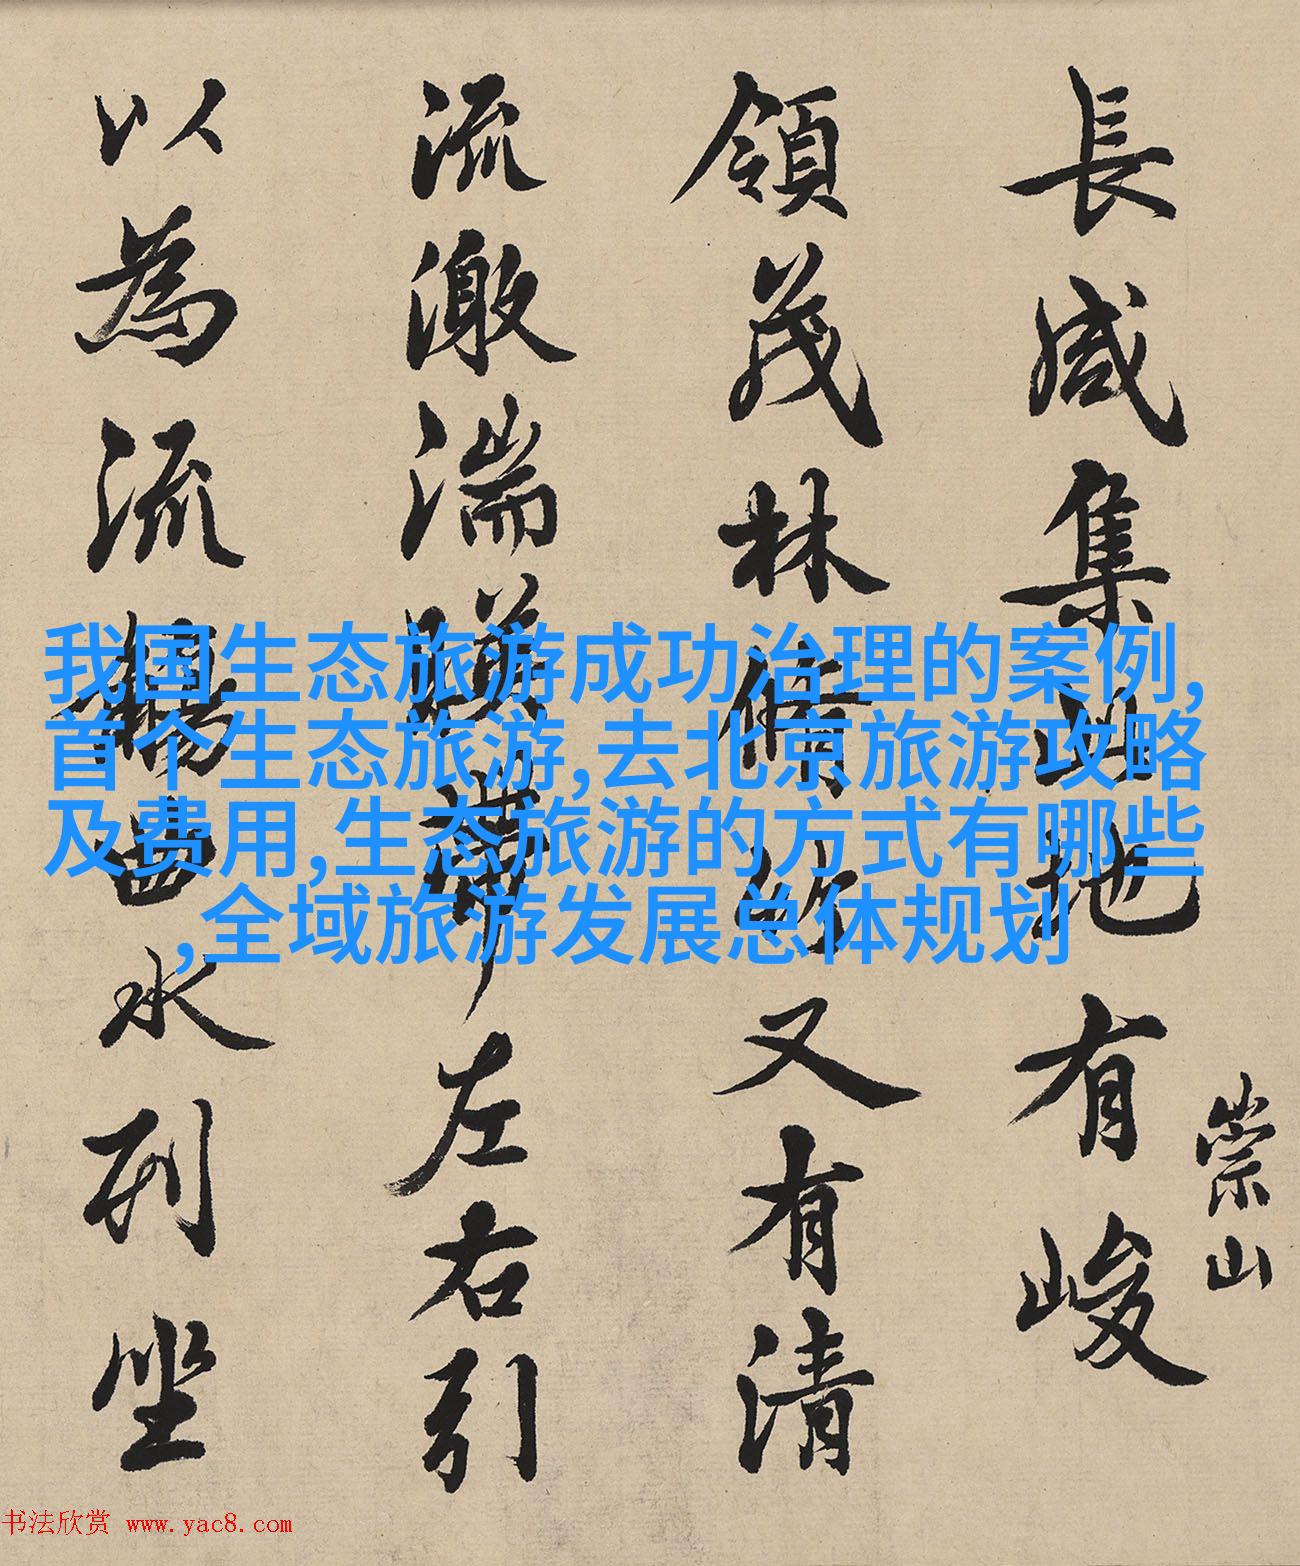 長咸集此地有峻
崇山
領茂林脩竹又有清
流激湍暎帶左右引
以為流觴曲水列坐
我国生态旅游成功治理的案例,
首个生态旅游,去北京旅游攻略
及费用,生态旅游的方式有哪些
,全域旅游发展总体规划
书法欣赏 www.yac8.com